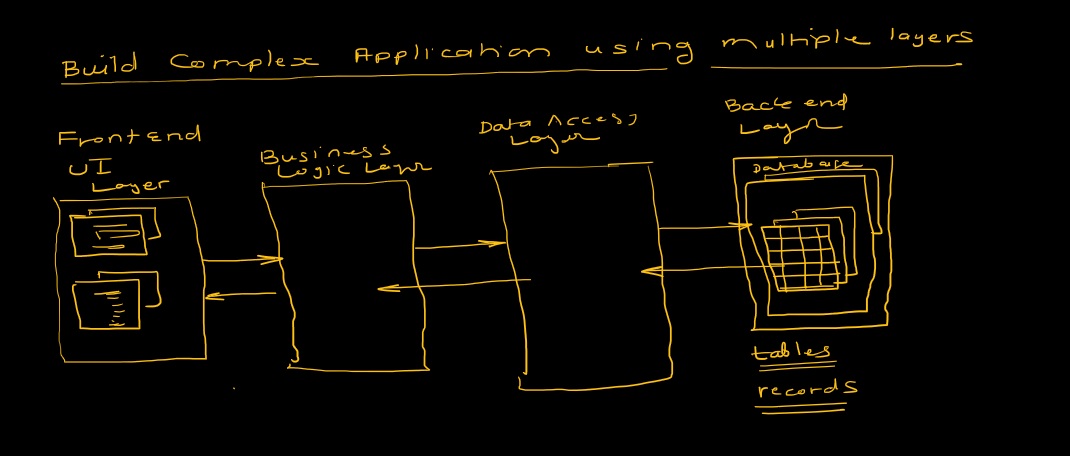 Build Complex Application using multiple layers
Frontend
UI
Layer
Business
Logic Layer
Data Access
Layer
Back end
Layer
Database
tables
records